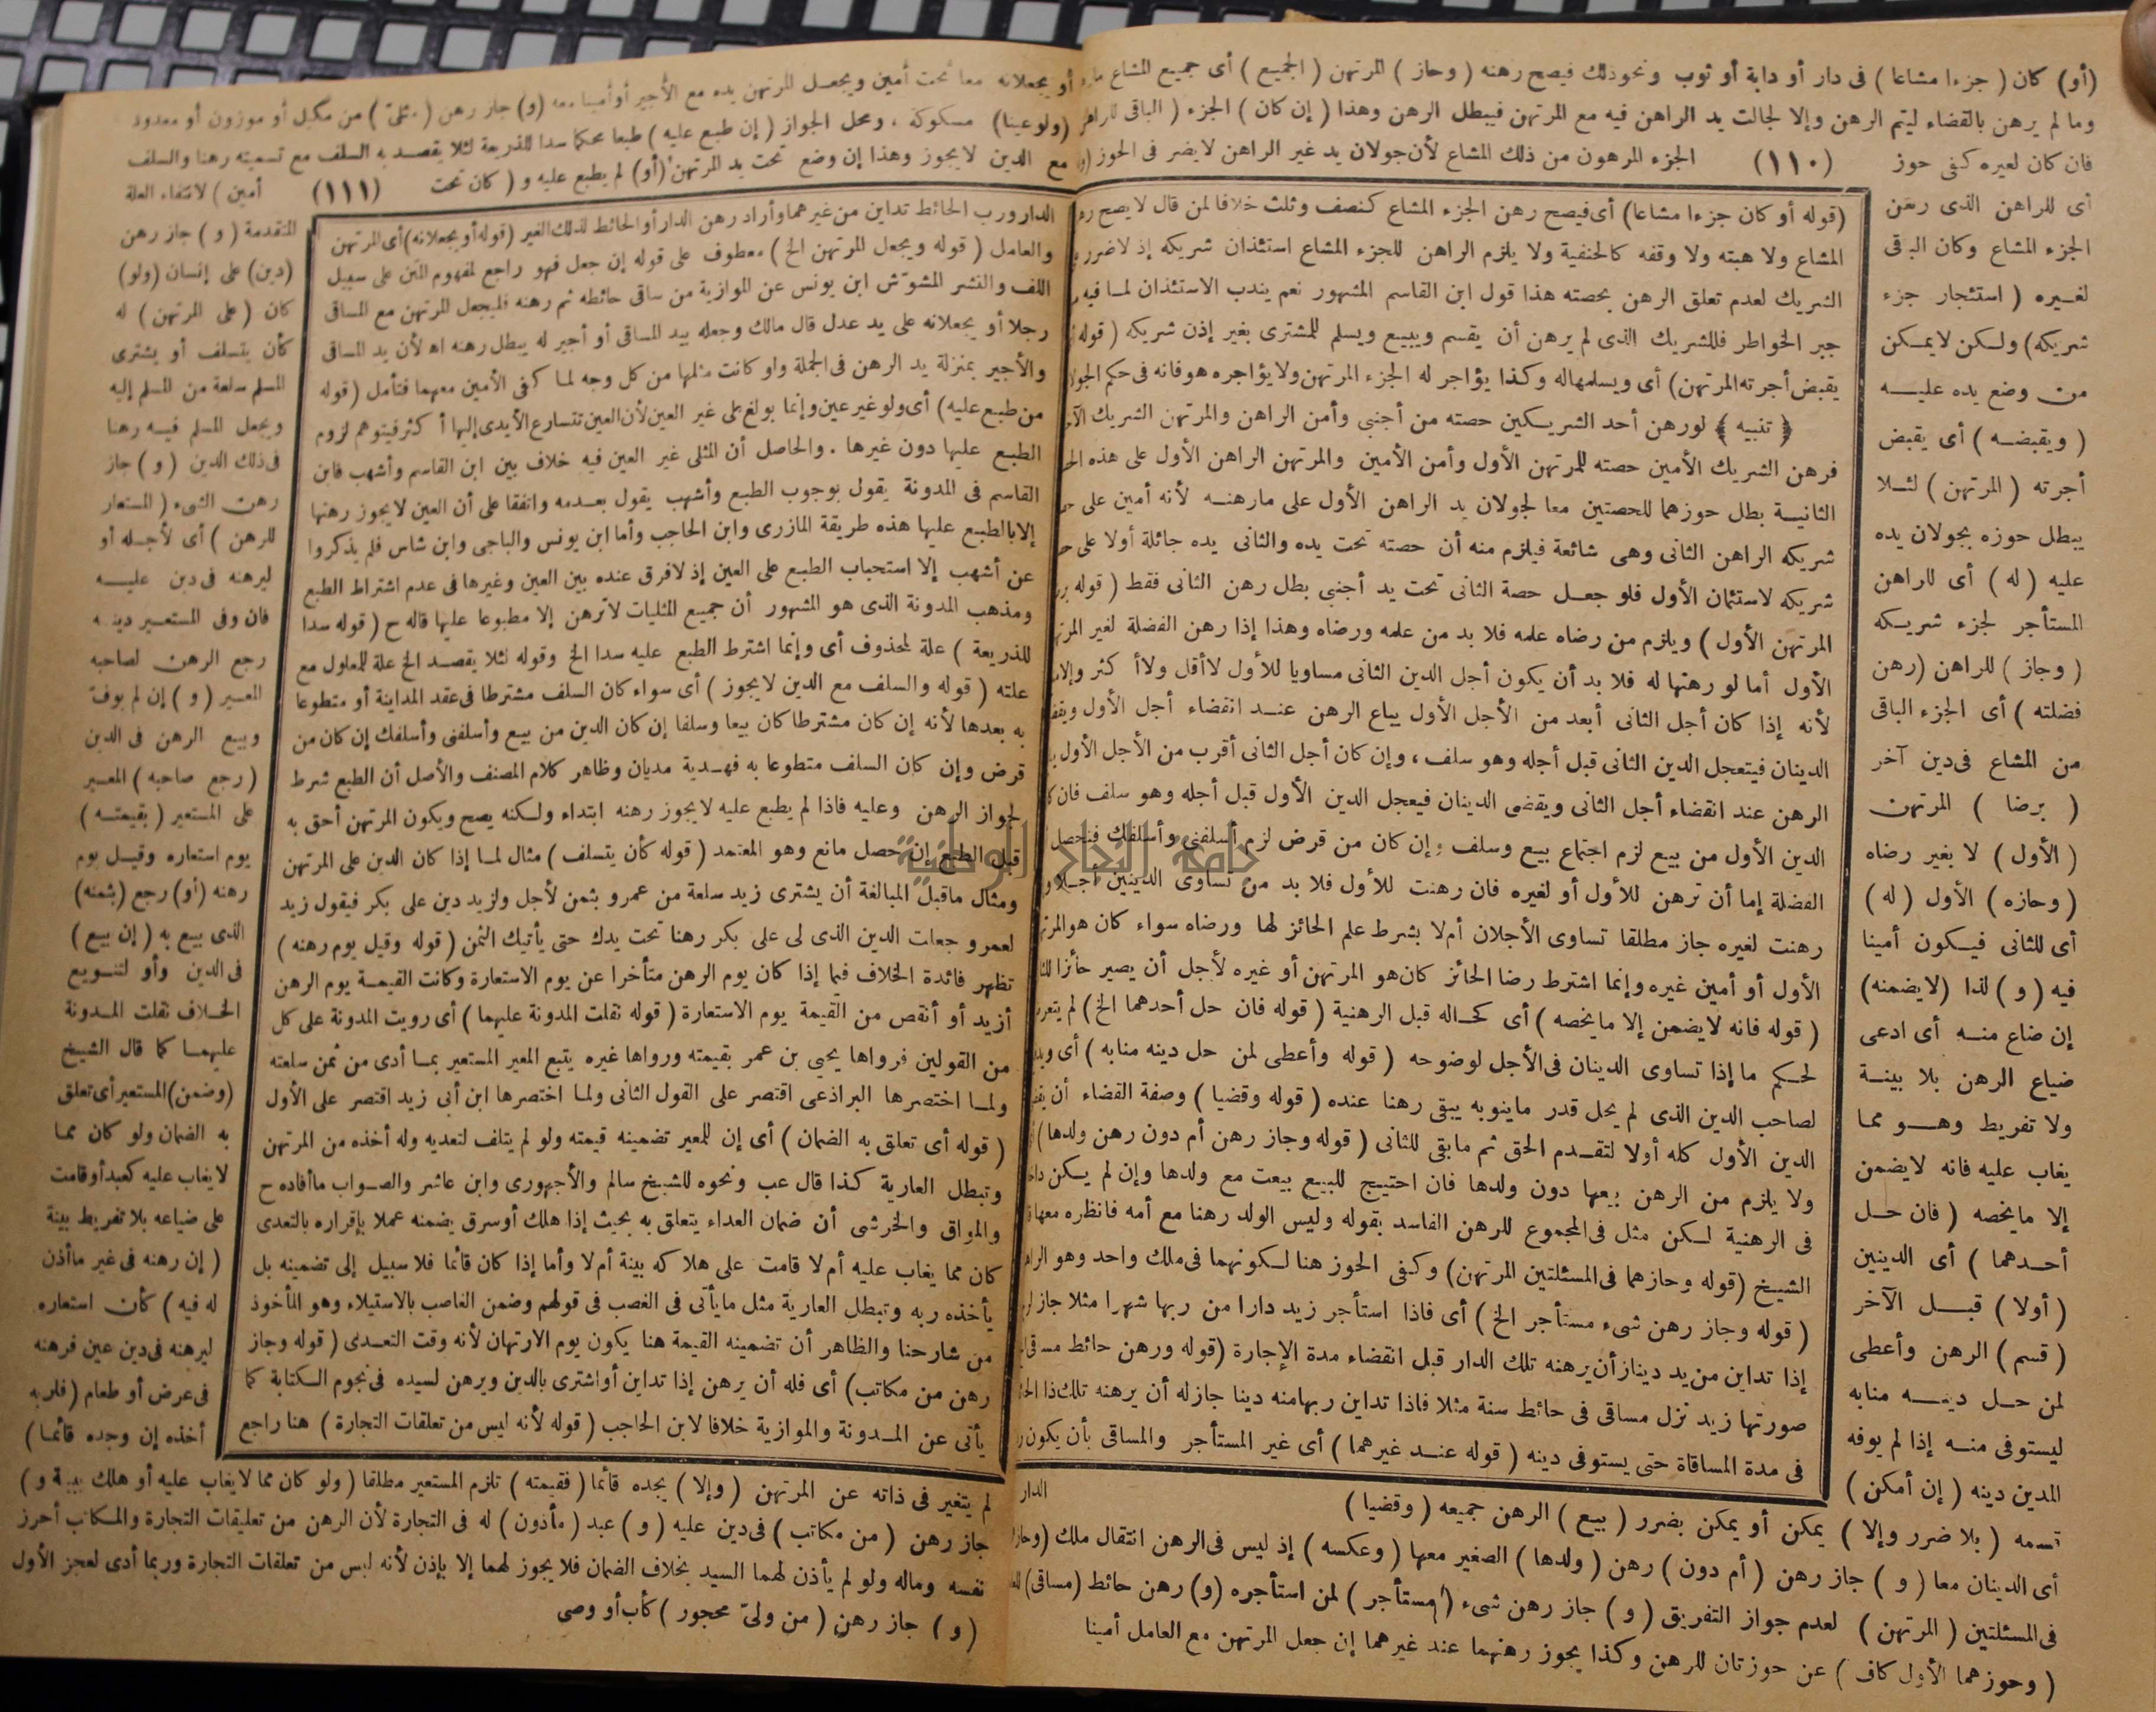 (أو) كان (جزءا مشاعا) فى دار أو دابة أو ثوب ونحو ذلك فيصح رهنه (وحاز) المرتهن (الجميع) أى جميع المشاع
وما لم يرهن بالقضاء ليتم الرهن وإلا لجالت يد الراهن فيه مع المرتهن فيبطل الرهن وهذا (إن كان) الجزء (الباقى للراهن
فان كان لغيره كفى حوز (١١٠) الجزء المرهون من ذلك المشاع لأن جولان يد غير الراهن لا يضر فى الحوز
أى للراهن الذى رهن
الجزء المشاع وكان الباقى
لغيره (استئجار جزء
شريكه) ولكن لا يمكن
من وضع يده عليه
(ويقبضه) أى يقبض
أجرته (المرتهن) لئلا
يبطل حوزه بجولان يده
عليه (له) أى للراهن
المستأجر لجزء شريكه
(وجاز) للراهن (رهن
فضلته) أى الجزء الباقى
من المشاع فى دين آخر
(برضا) المرتهن
(الأول) لا بغير رضاه
(وحازه) الأول (له)
أى للثانى فيكون أمينا
فيه (و) لذا (لا يضمنه)
إن ضاع منه أى ادعى
ضياع الرهن بلا بينة
ولا تفريط وهو مما
يغاب عليه فانه لا يضمن
إلا ما يخصه (فان حل
أحدهما) أى الدينين
(أولا) قبل الآخر
(قسم) الرهن وأعطى
لمن حل دينه منابه
ليستوفى منه إذا لم يوفه
المدين دينه (إن أمكن)
(قوله أو كان جزءا مشاعا) أى فيصح رهن الجزء المشاع كنصف وثلث خلافا لمن قال لا يصح
المشاع ولا هبته ولا وقفه كالحنفية ولا يلزم الراهن للجزء المشاع استئذان شريكه إذ لا ضرر
الشريك لعدم تعلق الرهن بحصته هذا قول ابن القاسم المشهور نعم يندب الاستئذان لما فيه
جبر الخواطر فللشريك الذى لم يرهن أن يقسم ويبيع ويسلم للمشترى بغير إذن شريكه (قوله
يقبض أجرته المرتهن) أى ويسلمها له وكذا يؤاجر له الجزء المرتهن ولا يؤاجره هو فانه فى حكم
﴿تنبيه﴾ لو رهن أحد الشريكين حصته من أجنبى وأمن الراهن والمرتهن الشريك
فرهن الشريك الأمين حصته للمرتهن الأول وأمن الأمين والمرتهن الراهن الأول على هذه
الثانية بطل حوزهما للحصتين معا لجولان يد الراهن الأول على ما رهنه لأنه أمين على
شريكه الراهن الثانى وهى شائعة فيلزم منه أن حصته تحت يده والثانى يده جائلة أولا على
شريكه لاستئمان الأول فلو جعل حصة الثانى تحت يد أجنبى بطل رهن الثانى فقط (قوله
المرتهن الأول) ويلزم من رضاه علمه فلا بد من علمه ورضاه وهذا إذا رهن الفضلة لغير
الأول أما لو رهنها له فلا بد أن يكون أجل الدين الثانى مساويا للأول لا أقل ولا أكثر
لأنه إذا كان أجل الثانى أبعد من الأجل الأول يباع الرهن عند انقضاء أجل الأول
الدينان فيتعجل الدين الثانى قبل أجله وهو سلف، وإن كان أجل الثانى أقرب من الأجل الأول
الرهن عند انقضاء أجل الثانى ويقضى الدينان فيعجل الدين الأول قبل أجله وهو سلف فان
الدين الأول من بيع لزم اجتماع بيع وسلف، وإن كان من قرض لزم أسلفنى وأسلفك فتحصل
الفضلة إما أن ترهن للأول أو لغيره فان رهنت للأول فلا بد من تساوى الدينين أجلا
رهنت لغيره جاز مطلقا تساوى الأجلان أم لا بشرط علم الحائز لها ورضاه سواء كان هو
الأول أو أمين غيره وإنما اشترط رضا الحائز كان هو المرتهن أو غيره لأجل أن يصير حائزا
(قوله فانه لا يضمن إلا ما يخصه) أى كحاله قبل الرهنية (قوله فان حل أحدهما الخ) لم
لحكم ما إذا تساوى الدينان فى الأجل لوضوحه (قوله وأعطى لمن حل دينه منابه) أى
لصاحب الدين الذى لم يحل قدر ما ينوبه يبقى رهنا عنده (قوله وقضيا) وصفة القضاء أن
الدين الأول كله أولا لتقدم الحق ثم ما بقى للثانى (قوله وجاز رهن أم دون رهن ولدها)
ولا يلزم من الرهن بيعها دون ولدها فان احتيج للبيع بيعت مع ولدها وإن لم يكن
فى الرهنية لكن مثل فى المجموع للرهن الفاسد بقوله وليس الولد رهنا مع أمه فانظره
الشيخ (قوله وحازهما فى المسئلتين المرتهن) وكفى الحوز هنا لكونهما فى ملك واحد وهو
(قوله وجاز رهن شىء مستأجر الخ) أى فاذا استأجر زيد دارا من ربها شهرا مثلا جاز
إذا تداين من يد دينار أن يرهنه تلك الدار قبل انقضاء مدة الإجارة (قوله ورهن حائط
صورتها زيد نزل مساقى فى حائط سنة مثلا فاذا تداين ربها منه دينا جاز له أن يرهنه تلك
فى مدة المساقاة حتى يستوفى دينه (قوله عند غيرهما) أى غير المستأجر والمساقى بأن يكون
الدار
قسمه (بلا ضرر وإلا) يمكن أو يمكن بضرر (بيع) الرهن جميعه (وقضيا)
أى الدينان معا (و) جاز رهن (أم دون) رهن (ولدها) الصغير معها (وعكسه) إذ ليس فى الرهن انتقال ملك
فى المسئلتين (المرتهن) لعدم جواز التفريق (و) جاز رهن شىء (مستأجر) لمن استأجره (و) رهن حائط (مساقى)
(وحوزهما الأول كاف) عن حوز ثان للرهن وكذا يجوز رهنهما عند غيرهما إن جعل المرتهن مع العامل أمينا
أو يجعلانه معا تحت أمين ويجعل المرتهن يده مع الأجير أو أمينا معه (و) جاز رهن (مثلى) من مكيل أو موزون أو معدود
(ولو عينا) مسكوكة، ومحل الجواز (إن طبع عليه) طبعا محكما سدا للذريعة لئلا يقصد به السلف مع تسميته رهنا والسلف
مع الدين لا يجوز وهذا إن وضع تحت يد المرتهن (أو) لم يطبع عليه و (كان تحت (١١١) أمين) لانتفاء العلة
المتقدمة (و) جاز رهن
(دين) على إنسان (ولو)
كان (على المرتهن) له
كأن يتسلف أو يشترى
المسلم سلعة من المسلم إليه
ويجعل المسلم فيه رهنا
فى ذلك الدين (و) جاز
رهن الشىء (المستعار
للرهن) أى لأجله أو
ليرهنه فى دين عليه
فان وفى المستعير دينه
رجع الرهن لصاحبه
المعير (و) إن لم يوف
وبيع الرهن فى الدين
(رجع صاحبه) المعير
على المستعير (بقيمته)
يوم استعاره وقيل يوم
رهنه (أو) رجع (بثمنه)
الذى بيع به (إن بيع)
فى الدين وأو لتنويع
الخلاف نقلت المدونة
عليهما كما قال الشيخ
(وضمن) المستعير أى تعلق
به الضمان ولو كان مما
لا يغاب عليه كعبد أو قامت
على ضياعه بلا تفريط بينة
(إن رهنه فى غير ما أذن
له فيه) كأن استعاره
ليرهنه فى دين عين فرهنه
فى عرض أو طعام (فلربه
أخذه إن وجده قائما)
الدار ورب الحائط تداين من غيرهما وأراد رهن الدار أو الحائط لذلك الغير (قوله أو يجعلانه) أى المرتهن
والعامل (قوله ويجعل المرتهن الخ) معطوف على قوله إن جعل فهو راجع لمفهوم المتن على سبيل
اللف والنشر المشوّش ابن يونس عن الموازية من ساقى حائطه ثم رهنه فليجعل المرتهن مع المساقى
رجلا أو يجعلانه على يد عدل قال مالك وجعله بيد المساقى أو أجير له يبطل رهنه اه لأن يد المساقى
والأجير بمنزلة يد الرهن فى الجملة ولو كانت مثلها من كل وجه لما كفى الأمين معهما فتأمل (قوله
من طبع عليه) أى ولو غير عين وإنما بولغ على غير العين لأن العين تتسارع الأيدى إليها أكثر فيتوهم لزوم
الطبع عليها دون غيرها. والحاصل أن المثلى غير العين فيه خلاف بين ابن القاسم وأشهب فابن
القاسم فى المدونة يقول بوجوب الطبع وأشهب يقول بعدمه واتفقا على أن العين لا يجوز رهنها
إلا بالطبع عليها هذه طريقة المازرى وابن الحاجب وأما ابن يونس والباجى وابن شاس فلم يذكروا
عن أشهب إلا استحباب الطبع على العين إذ لا فرق عنده بين العين وغيرها فى عدم اشتراط الطبع
ومذهب المدونة الذى هو المشهور أن جميع المثليات لا ترهن إلا مطبوعا عليها قاله ح (قوله سدا
للذريعة) علة لمحذوف أى وإنما اشترط الطبع عليه سدا الخ وقوله لئلا يقصد الخ علة للمعلول مع
علته (قوله والسلف مع الدين لا يجوز) أى سواء كان السلف مشترطا فى عقد المداينة أو متطوعا
به بعدها لأنه إن كان مشترطا كان بيعا وسلفا إن كان الدين من بيع وأسلفنى وأسلفك إن كان من
قرض وإن كان السلف متطوعا به فهدية مديان وظاهر كلام المصنف والأصل أن الطبع شرط
لجواز الرهن وعليه فاذا لم يطبع عليه لا يجوز رهنه ابتداء ولكنه يصح ويكون المرتهن أحق به
قبل الطبع إن حصل مانع وهو المعتمد (قوله كأن يتسلف) مثال لما إذا كان الدين على المرتهن
ومثال ما قبل المبالغة أن يشترى زيد سلعة من عمرو بثمن لأجل ولزيد دين على بكر فيقول زيد
لعمرو جعلت الدين الذى لى على بكر رهنا تحت يدك حتى يأتيك الثمن (قوله وقيل يوم رهنه)
تظهر فائدة الخلاف فيما إذا كان يوم الرهن متأخرا عن يوم الاستعارة وكانت القيمة يوم الرهن
أزيد أو أنقص من القيمة يوم الاستعارة (قوله نقلت المدونة عليهما) أى رويت المدونة على كل
من القولين فرواها يحيى بن عمر بقيمته ورواها غيره يتبع المعير المستعير بما أدى من ثمن سلعته
ولما اختصرها البراذعى اقتصر على القول الثانى ولما اختصرها ابن أبى زيد اقتصر على الأول
(قوله أى تعلق به الضمان) أى إن للمعير تضمينه قيمته ولو لم يتلف لتعديه وله أخذه من المرتهن
وتبطل العارية كذا قال عب ونحوه للشيخ سالم والأجهورى وابن عاشر والصواب ما أفاده ح
والمواق والخرشى أن ضمان العداء يتعلق به بحيث إذا هلك أو سرق يضمنه عملا بإقراره بالتعدى
كان مما يغاب عليه أم لا قامت على هلاكه بينة أم لا وأما إذا كان قائما فلا سبيل إلى تضمينه بل
يأخذه ربه وتبطل العارية مثل ما يأتى فى الغصب فى قولهم وضمن الغاصب بالاستيلاء وهو المأخوذ
من شارحنا والظاهر أن تضمينه القيمة هنا يكون يوم الارتهان لأنه وقت التعدى (قوله وجاز
رهن من مكاتب) أى فله أن يرهن إذا تداين أو اشترى بالدين ويرهن لسيده فى نجوم الكتابة كما
يأتى عن المدونة والموازية خلافا لابن الحاجب (قوله لأنه ليس من تعلقات التجارة) هنا راجع
لم يتغير فى ذاته عن المرتهن (وإلا) يجده قائما (فقيمته) تلزم المستعير مطلقا (ولو كان مما لا يغاب عليه أو هلك ببينة و)
جاز رهن (من مكاتب) فى دين عليه (و) عبد (مأذون) له فى التجارة لأن الرهن من تعليقات التجارة والمكاتب أحرز
نفسه وماله ولو لم يأذن لهما السيد بخلاف الضمان فلا يجوز لهما إلا بإذن لأنه ليس من تعلقات التجارة وربما أدى لعجز الأول
(و) جاز رهن (من ولىّ محجور) كأب أو وصى
جامعة النجاح الوطنية